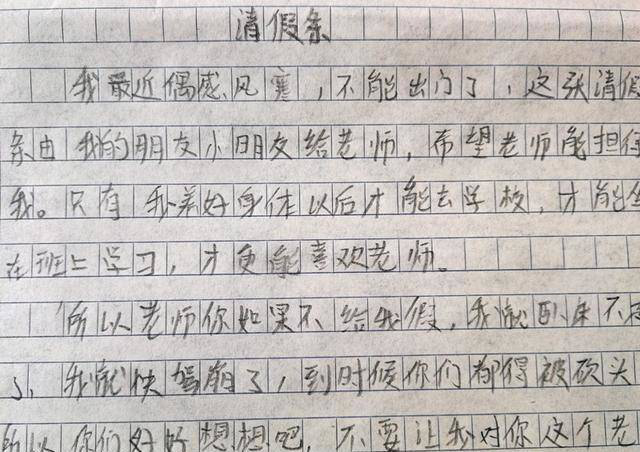 清假条
我最近偶感风寒，不能出门了，这张清假
条由我的朋友小朋友给老师，希望老师能担
我。只有我养好身体以后才能去学校，才能坐
在班上学习，才更能喜欢老师。
所以老师你如果不给我假，我就卧床不起
了、我就快驾崩了，到时候你们都得被砍头
所以你们好好想想吧，不要让我对你这个老